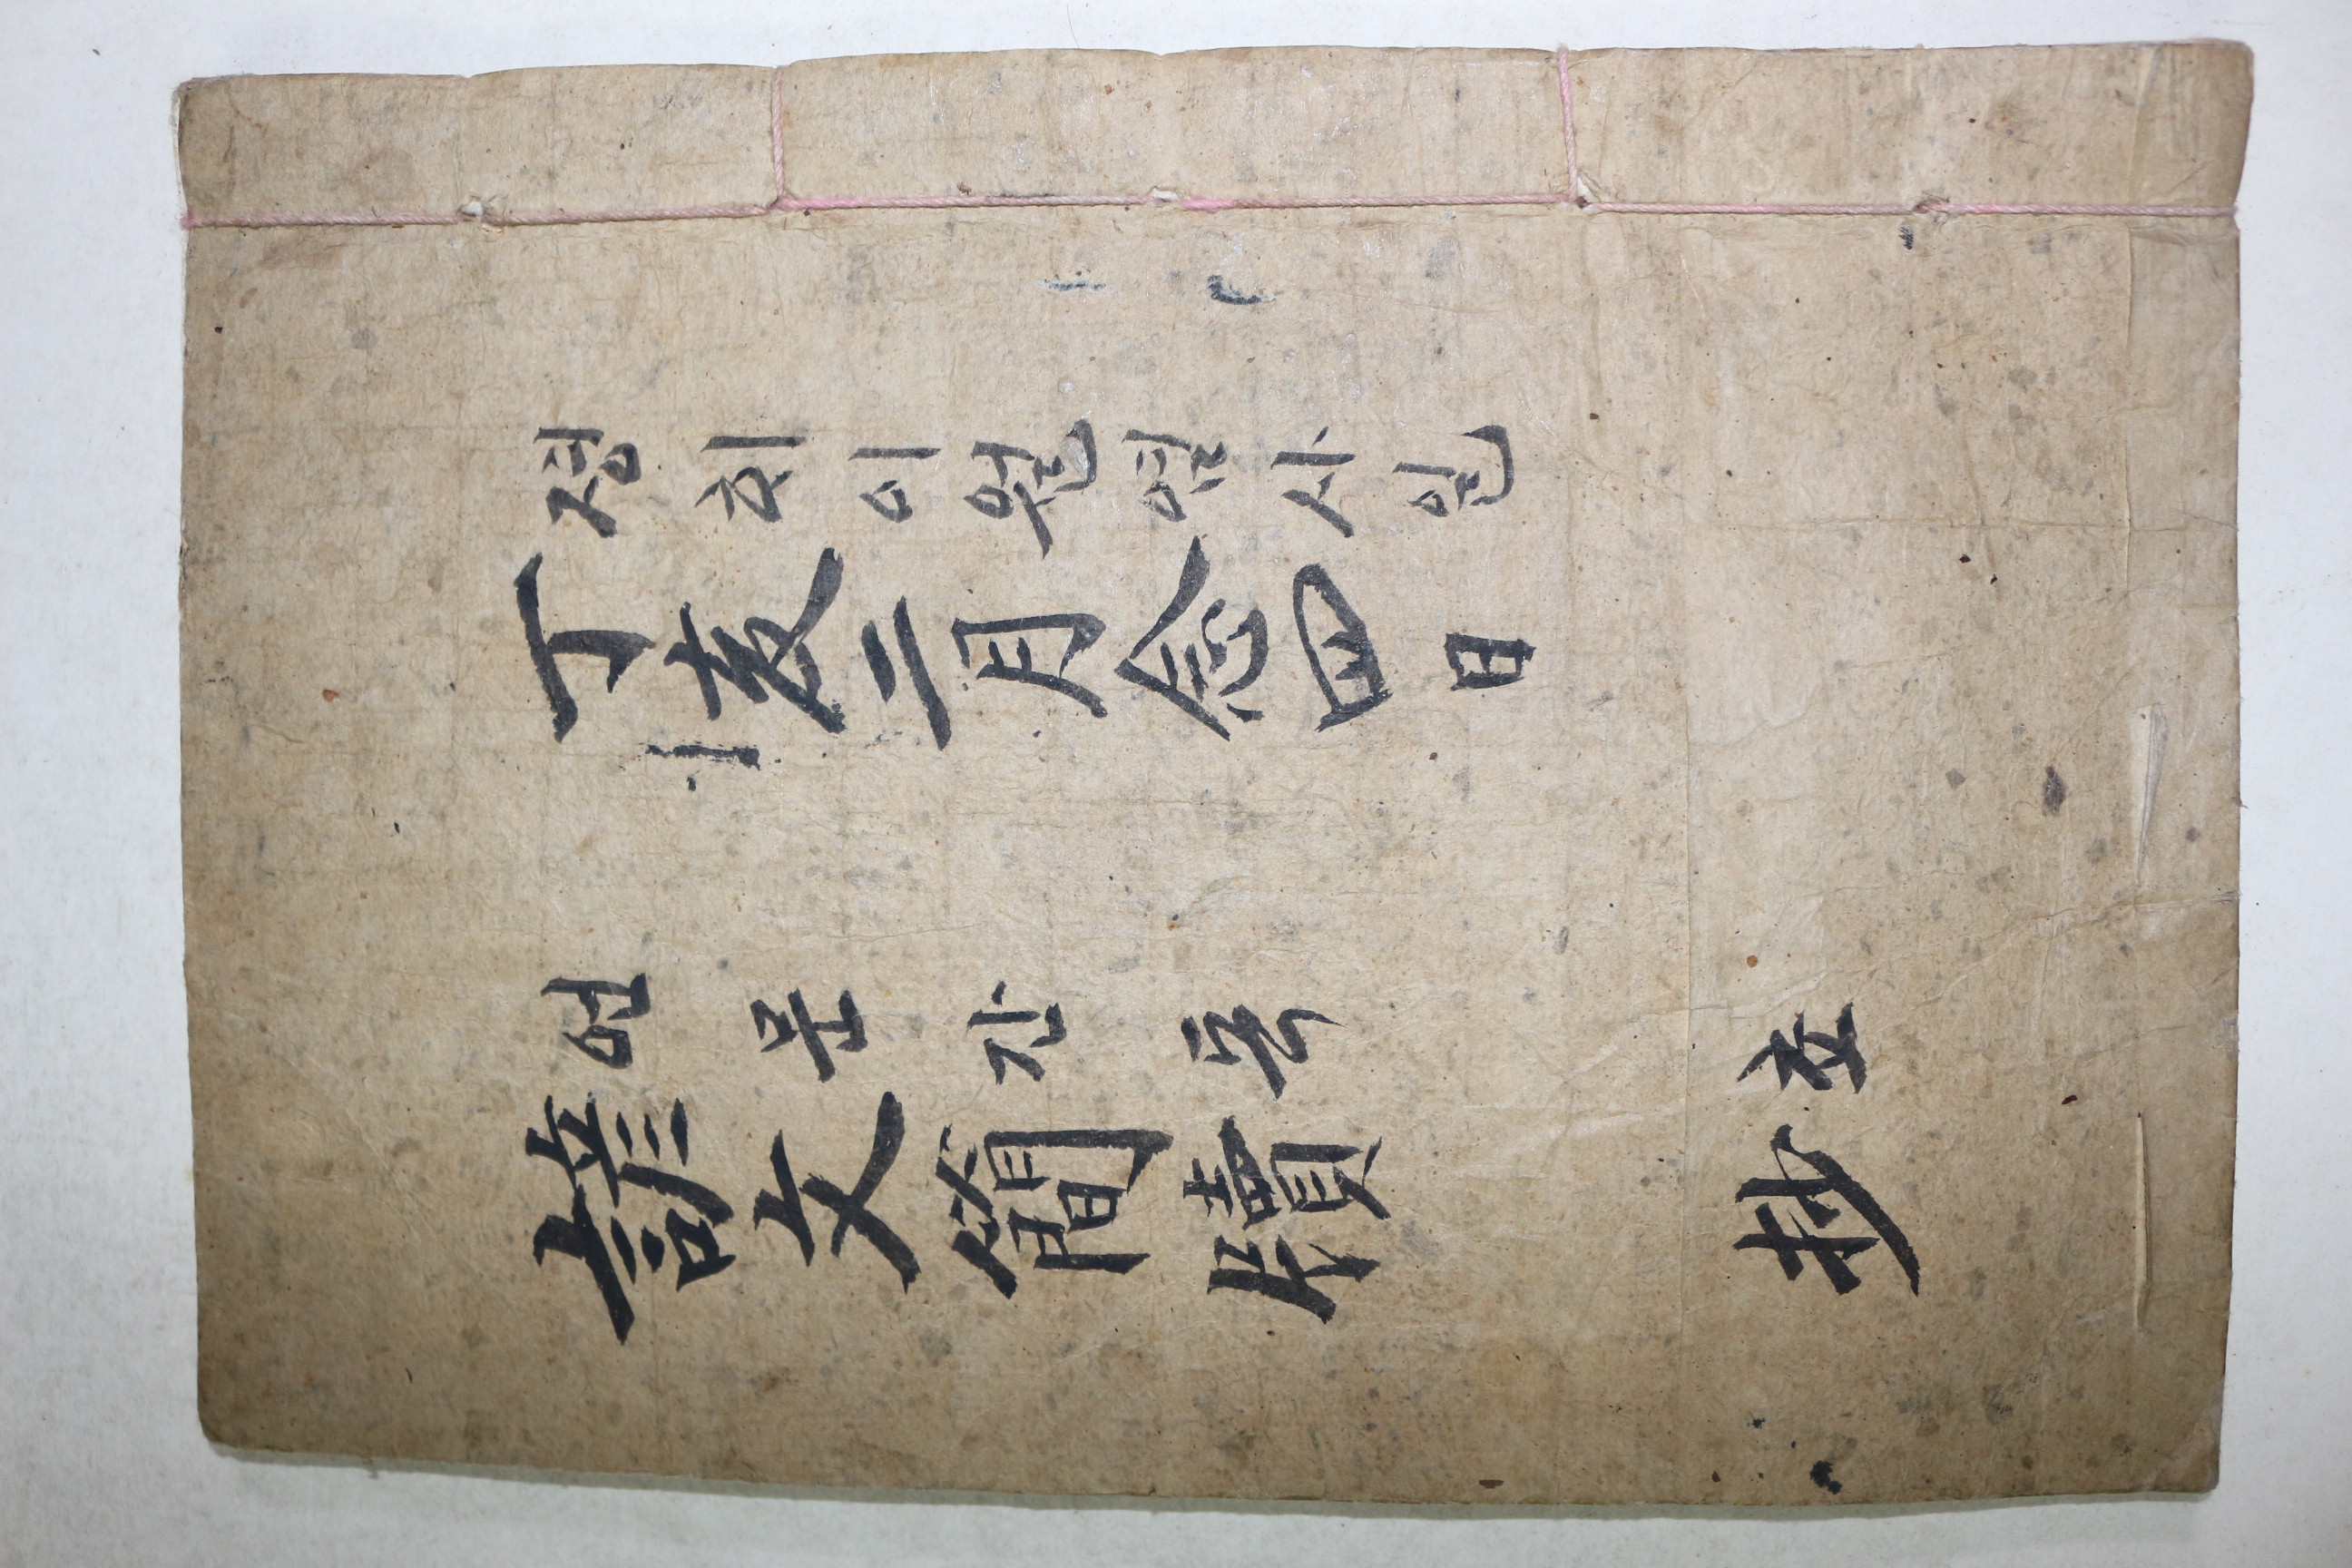 졍ᄒᆡ이월염사일
丁亥二月念四日
언문간독 초
諺文簡牘 抄